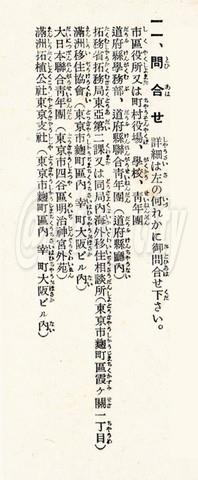 一一、問合せ 詳細は左の何れかに御問合せ下さい。
市區役所又は町村役場、學校、青年團
道府縣學務部、道府縣聯合青年團（道府縣廳內）
拓務省拓務局東亞第二課又は同局內海外移住相談所（東京市麴町區霞ヶ關一丁目）
滿洲移住協會（東京市麴町區內幸町大阪ビル內）
大日本聯合青年團（東京市四谷區明治神宮外苑）
滿洲拓植公社東京支社（東京市麴町區內幸町大阪ビル內）